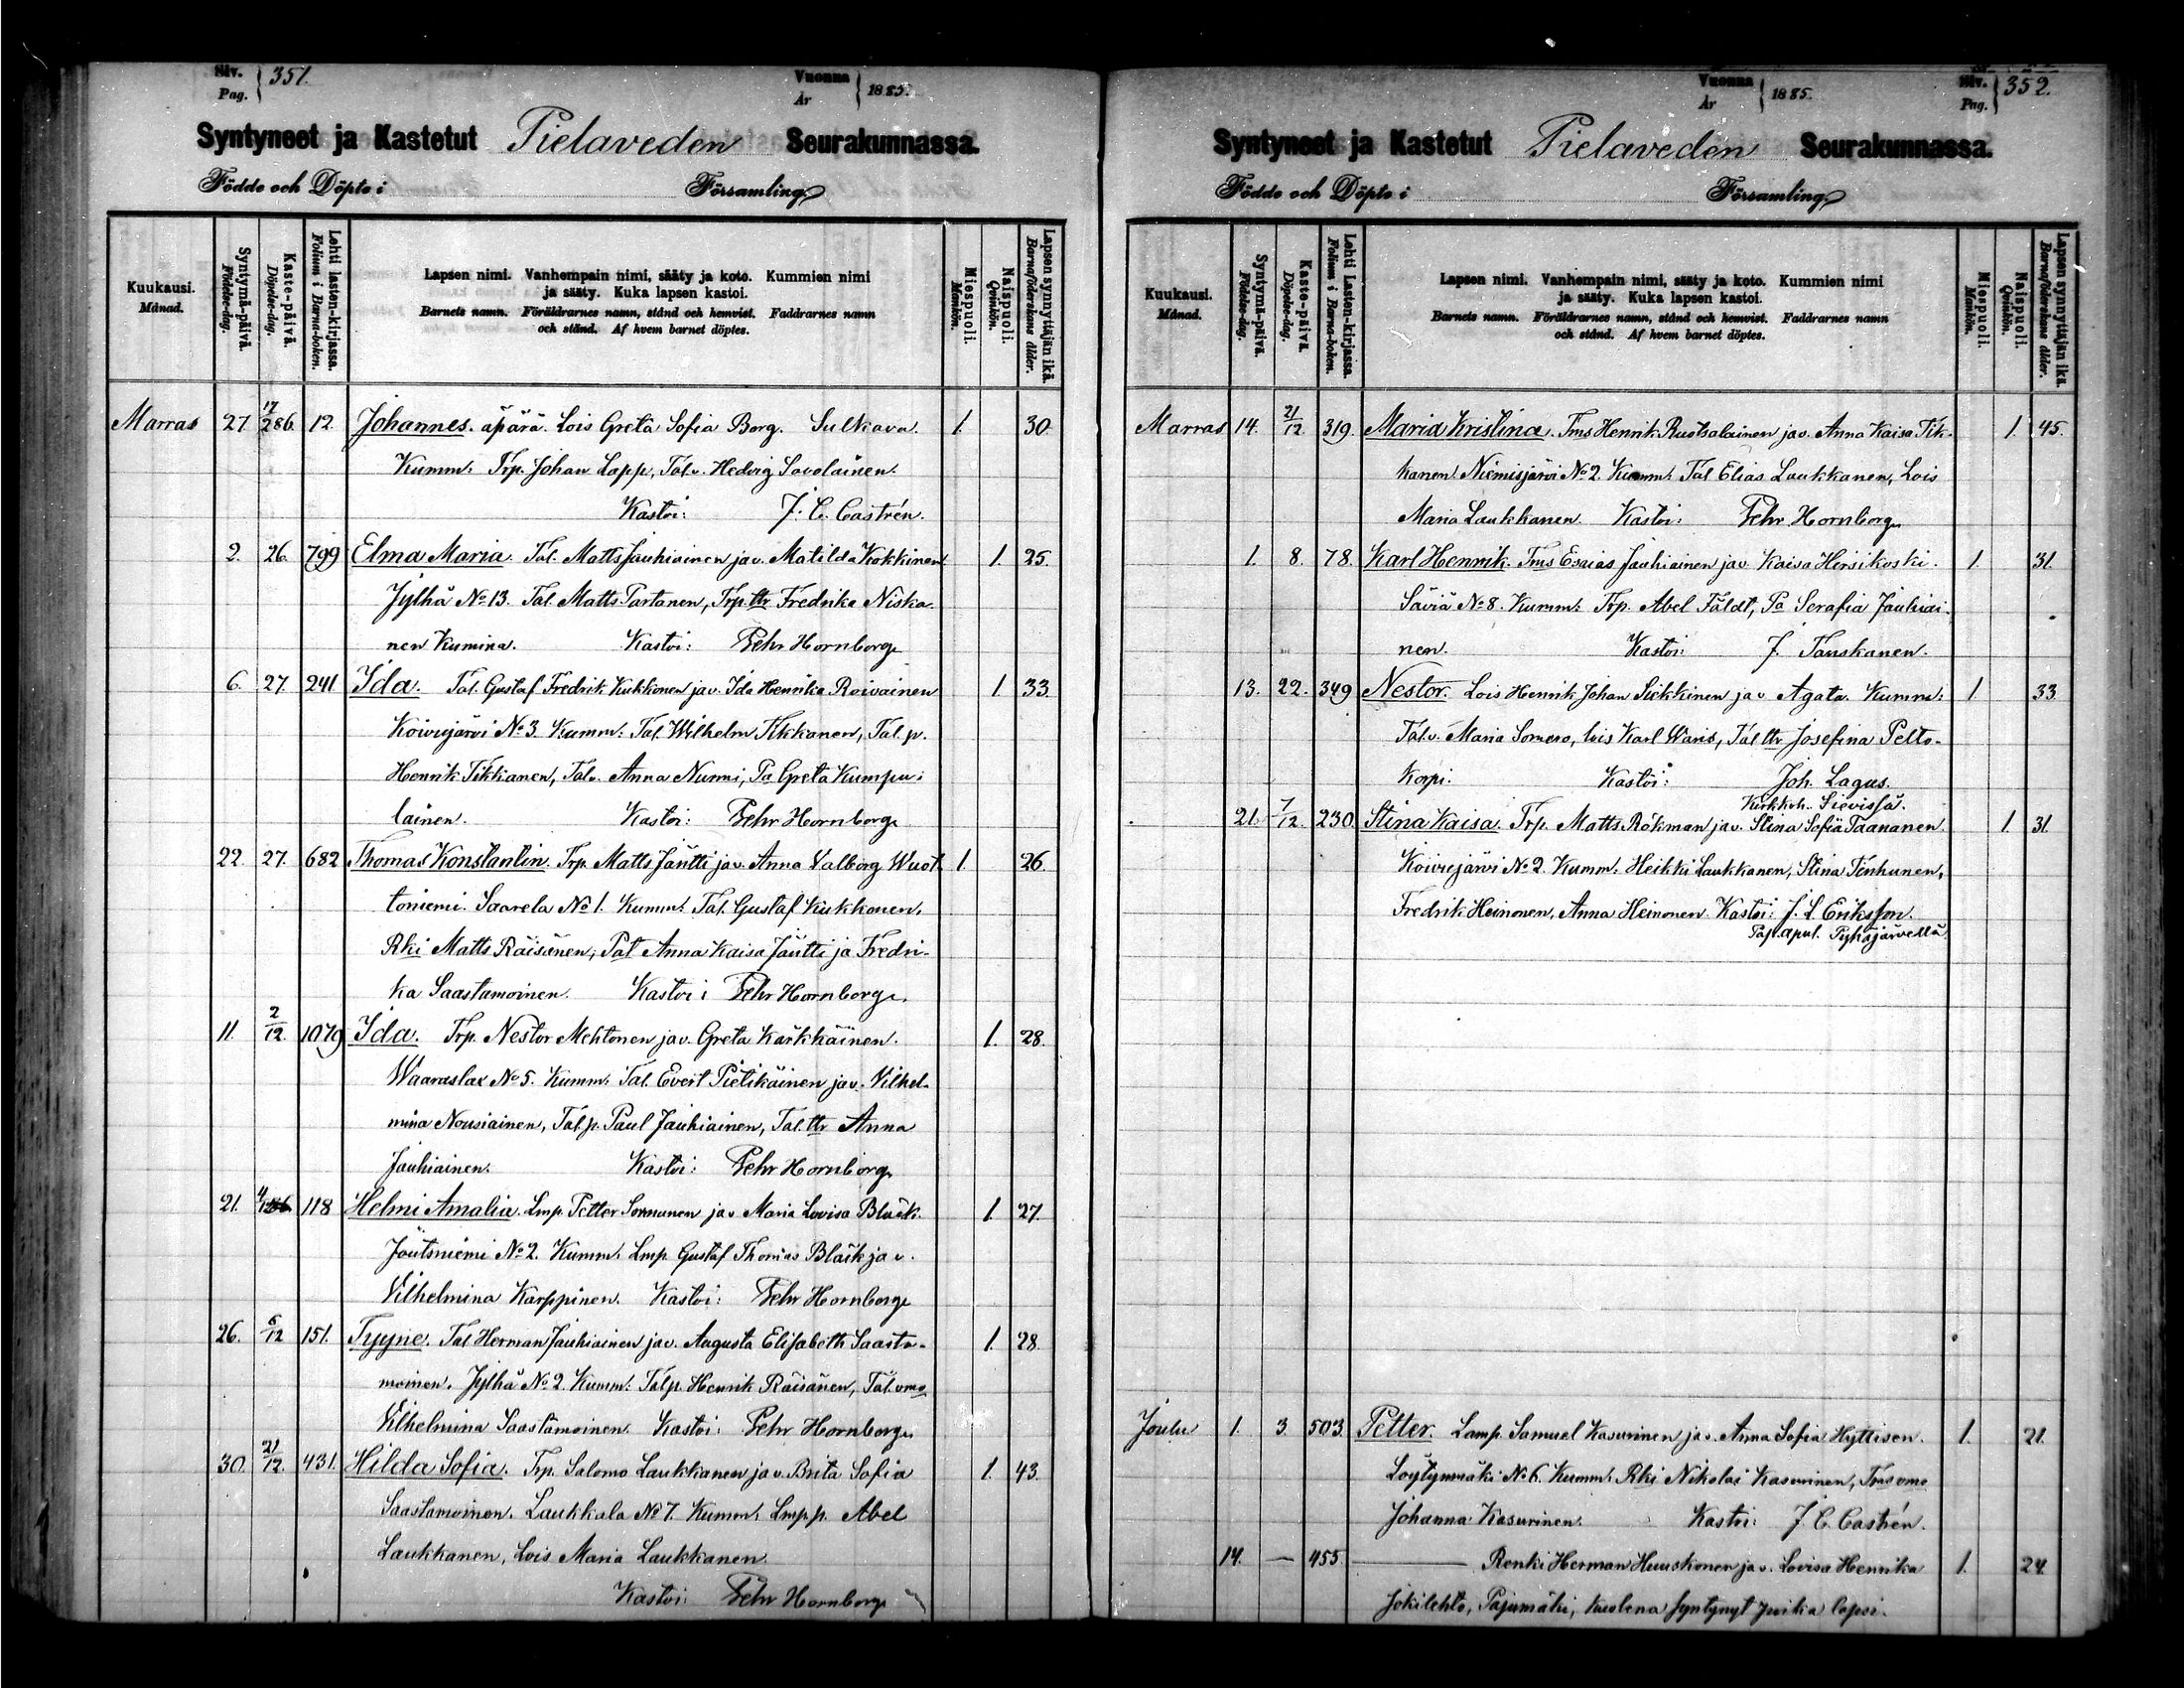 Siv. Pag. 351. Vuonna År 1885.
Syntyneet ja Kastetut Pielaveden Seurakunnassa.
Födde och Döpte i Församling
Kuukausi. Månad.
Syntymä-päivä. Födelse-dag.
Kaste-päivä. Döpelse-dag.
Lehti lasten-kirjassa. Folium i Barna-boken.
Lapsen nimi. Vanhempain nimi, sääty ja koto. Kummien nimi
ja sääty. Kuka lapsen kastoi.
Barnets namn. Föräldrarnes namn, stånd och hemvist. Faddrarnes namn
och stånd. Af hvem barnet döptes.
Miespuoli. Mankön.
Naispuoli. Qvinkön.
Lapsen synnyttäjän ikä. Barnaföderskans ålder.
Marras 27 17/286. 12 Johannes. äpärä. Lois Greta Sofia Borg. Sulkava. 1. 30
Kumm: Trp. Johan Lapp, Tal.v. Hedvig Savolainen.
Kastoi: J. C. Castrén.
2. 26. 799 Elma Maria. Tal. Matts Jauhiainen ja v. Matilda Kokkinen 1. 25.
Jylhä No 13. Tal. Matts Partanen, Trp. ttr Fredrika Niska-
nen Kumina. Kastoi: Pehr Hornborg
6. 27. 241 Ida. Tal. Gustaf Fredrik Kukkonen ja v. Ida Henrika Roivainen 1. 33.
Koivujärvi No 3. Kumm: Tal. Wilhelm Tikkanen, Tal. p.
Henrik Tikkanen, Talv. Anna Nurmi, Pa Greta Kumpu-
lainen. Kastoi: Pehr Hornborg
22. 27. 682 Thomas Konstantin. Trp. Matts Jäntti ja v. Anna Valborg Wuot 1. 26.
toniemi. Saarela No 1. Kumm: Tal. Gustaf Kukkonen,
Rki Matts Räisänen, Pat Anna Kaisa Jäntti ja Fredri-
ka Saastamoinen. Kastoi: Pehr Hornborg.
11. 2/12. 1079 Ida. Trp. Nestor Mehtonen ja v. Greta Kärkkäinen. 1. 28.
Waaraslax No 5. Kumm: Tal. Evert Pietikäinen ja v. Vilhel-
mina Nousiainen, Tal.p. Paul Jauhiainen, Tal. ttr Anna
Jauhiainen. Kastoi: Pehr Hornborg
21. 118 Helmi Amalia. Lmp. Petter Sormunen ja v. Maria Lovisa Bläck. 1. 27.
Joutsniemi No 2. Kumm: Lmp. Gustaf Thomas Bläck ja v.
Vilhelmina Karppinen. Kastoi: Pehr Hornborg
26. 6/12 151. Tyyne. Tal. Herman Jauhiainen ja v. Augusta Elisabeth Saasta- 1. 28.
moinen. Jylhä No 2. Kumm: Talp. Henrik Räisänen, Tal. vmo
Vilhelmina Saastamoinen. Kastoi: Pehr Hornborg
30. 21/12. 431. Hilda Sofia. Trp. Salomo Laukkanen ja v. Brita Sofia 1. 43.
Saastamoinen. Laukkala No 7. Kumm: Lmp.p. Abel
Laukkanen, Lois Maria Laukkanen.
Kastoi: Pehr Hornborg
Siv. Pag. 352. Vuonna År 1885.
Syntyneet ja Kastetut Pielaveden Seurakunnassa.
Födde och Döpte i Församling
Kuukausi. Månad.
Syntymä-päivä. Födelse-dag.
Kaste-päivä. Döpelse-dag.
Lehti Lasten-kirjassa. Folium i Barna-boken.
Lapsen nimi. Vanhempain nimi, sääty ja koto. Kummien nimi
ja sääty. Kuka lapsen kastoi.
Barnets namn. Föräldrarnes namn, stånd och hemvist. Faddrarnes namn
och stånd. Af hvem barnet döptes.
Miespuoli. Mankön.
Naispuoli. Qvinkön.
Lapsen synnyttäjän ikä. Barnaföderskans ålder.
Marras 14. 21/12 319. Maria Kristina. Tms Henrik Ruotsalainen ja v. Anna Kaisa Tik- 1. 45.
kanen. Niemisjärvi No 2. Kumm: Tal Elias Laukkanen, Lois
Maria Laukkanen. Kastoi: Pehr Hornborg
1. 8. 78. Karl Henrik. Tms Esaias Jauhiainen ja v. Kaisa Hirsikoski. 1. 31.
Säviä No 8. Kumm: Trp. Abel Fäldt, Pa Serafia Jauhiai-
nen. Kastoi: J. Tanskanen.
13. 22. 349 Nestor. Lois Henrik Johan Sickkinen ja v. Agata. Kumm: 1. 33.
Talv. Maria Somero, lois Karl Waris, Tal ttr Josefina Pelto-
korpi. Kastoi: Joh. Lagus.
Kirkkoh. Sievissä.
21. 7/12. 230 Stina Kaisa. Trp. Matts Rökman ja v. Stina Sofia Taananen. 1. 31.
Koivujärvi No 2. Kumm: Heikki Laukkanen, Stina Tenhunen,
Fredrik Heinonen, Anna Heinonen. Kastoi: J. L. Eriksson.
Pap. apul. Pyhäjärvellä
Joulu 1. 3. 503. Petter. Lamp. Samuel Kasurinen ja v. Anna Sofia Hyttisen. 1. 21.
Löytynmäki No 6. Kumm: Rki Nikolai Kasurinen, Tms vmo
Johanna Kasurinen. Kastoi: J. C. Castrén.
14. — 455. — Renki Herman Huuskonen ja v. Lovisa Henrika 1. 24.
Jokilehto, Pajumäki, kuolena syntynyt poika lapsi.